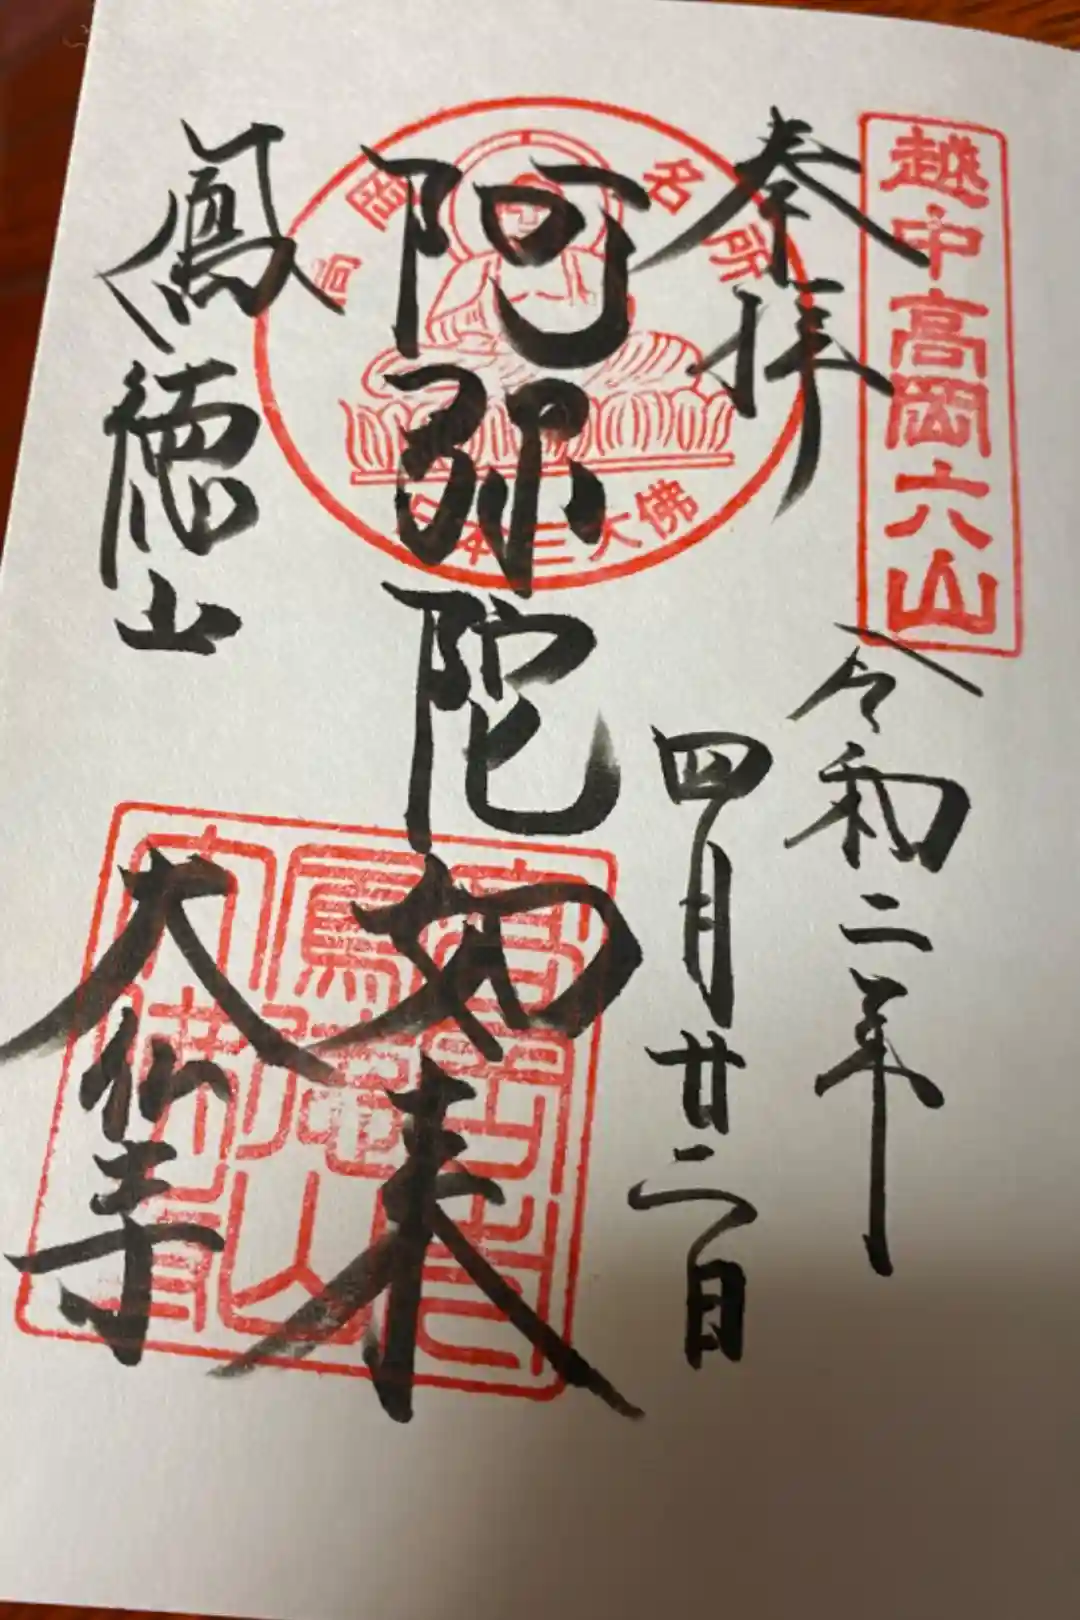 越中高岡六山
奉拝
令和二年
四月廿二日
高岡名所
日本三大佛
阿弥陀如来
鳳徳山
大仏寺